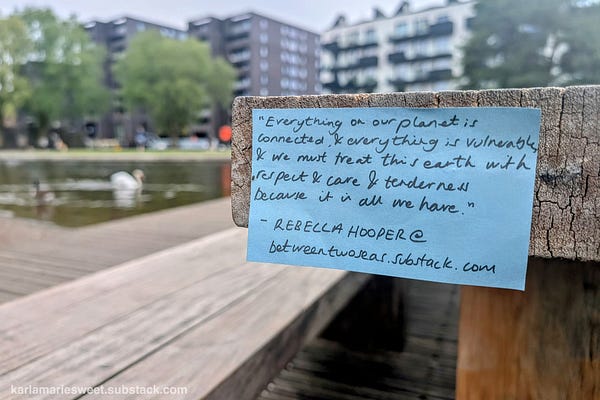 "Everything on our planet is
connected, & everything is vulnerable
& we must treat this earth with
respect & care & tenderness
because it is all we have."
- REBELLA HOOPER @
betweentwoseas.substack.com
karlamariesweet.substack.com